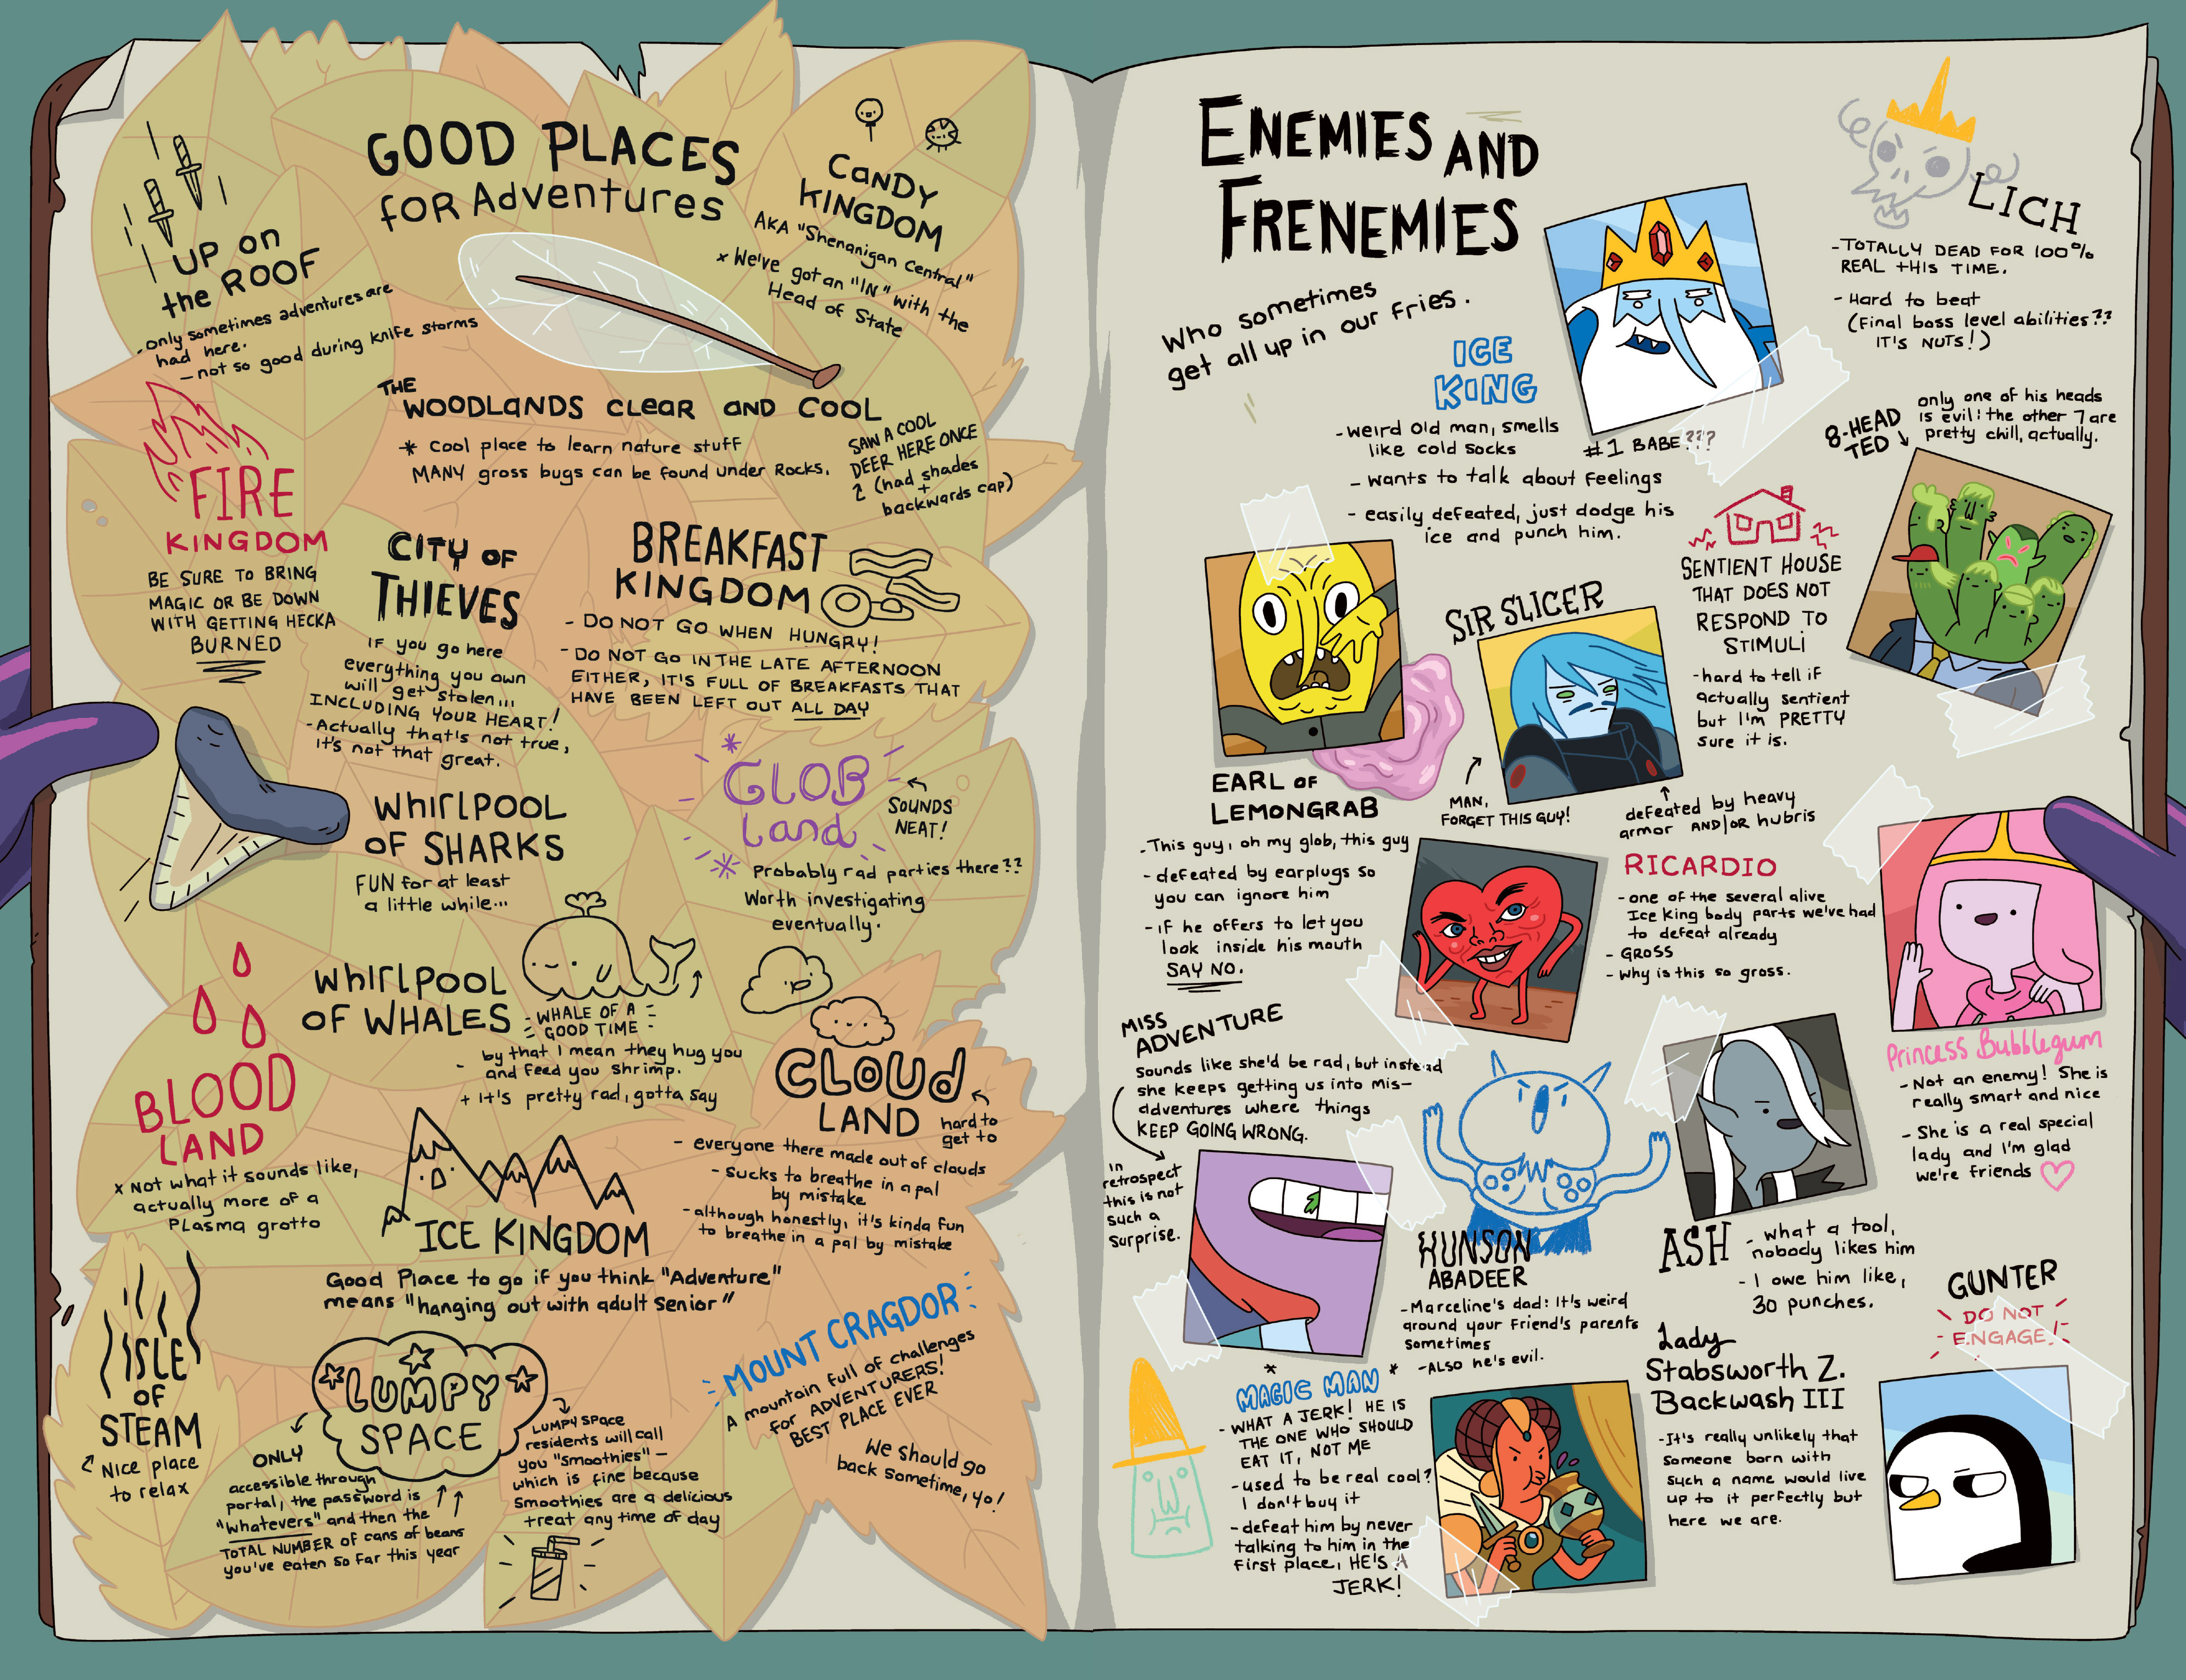 GOOD PLACES
for Adventures
UP on
the ROOF
- only sometimes adventures are
had here.
- not so good during knife storms
CANDY
KINGDOM
AKA "Shenanigan Central"
x We've got an "IN" with the
Head of State
THE
WOODLANDS CLEAR AND COOL
* Cool place to learn nature stuff
MANY gross bugs can be found under Rocks.
SAW A COOL
DEER HERE ONCE
2 (had shades
+
backwards cap)
FIRE
KINGDOM
BE SURE TO BRING
MAGIC OR BE DOWN
WITH GETTING HECKA
BURNED
CITY OF
THIEVES
IF you go here
everything you own
will get stolen...
INCLUDING YOUR HEART!
- Actually that's not true,
it's not that great.
BREAKFAST
KINGDOM
- DO NOT GO WHEN HUNGRY!
- DO NOT GO IN THE LATE AFTERNOON
EITHER, IT'S FULL OF BREAKFASTS THAT
HAVE BEEN LEFT OUT ALL DAY
WHIRLPOOL
OF SHARKS
FUN for at least
a little while...
GLOB
Land
SOUNDS
NEAT!
Probably rad parties there??
Worth investigating
eventually.
WHIRLPOOL
OF WHALES
- WHALE OF A -
GOOD TIME
- by that I mean they hug you
and feed you shrimp.
+ It's pretty rad, gotta say
BLOOD
LAND
x Not what it sounds like,
actually more of a
PLasma grotto
CLOUD
LAND
hard to
get to
- everyone there made out of clouds
- sucks to breathe in a pal
by mistake
- although honestly, it's kinda fun
to breathe in a pal by mistake
ICE KINGDOM
Good Place to go if you think "Adventure"
means "hanging out with adult Senior"
ISLE
OF
STEAM
Nice place
to relax
LUMPY
SPACE
ONLY
accessible through
portal, the password is
"whatevers" and then the
TOTAL NUMBER of cans of beans
you've eaten so far this year
LUMPY SPace
residents will call
you "Smoothies" -
which is fine because
Smoothies are a delicious
treat any time of day
MOUNT CRAGDOR
A mountain full of challenges
for ADVENTURERS!
BEST PLACE EVER
We should go
back sometime, yo!
ENEMIES AND
FRENEMIES
Who sometimes
get all up in our fries.
LICH
- TOTALLY DEAD FOR 100%
REAL THIS TIME.
- Hard to beat
(Final boss level abilities??
IT'S NUTS!)
ICE
KING
- weird old man, smells
like cold socks
- wants to talk about Feelings
- easily defeated, just dodge his
ice and punch him.
#1 BABE???
8-HEAD
TED
only one of his heads
is evil: the other 7 are
pretty chill, actually.
EARL OF
LEMONGRAB
- This guy, oh my glob, this guy
- defeated by earplugs so
you can ignore him
- if he offers to let you
look inside his mouth
SAY NO.
SIR SLICER
MAN,
FORGET THIS GUY!
defeated by heavy
armor AND/OR hubris
SENTIENT HOUSE
THAT DOES NOT
RESPOND TO
STIMULI
- hard to tell if
actually sentient
but I'm PRETTY
sure it is.
RICARDIO
- one of the several alive
Ice King body parts we've had
to defeat already
- GROSS
- why is this so gross.
Princess Bubblegum
- Not an enemy! She is
really smart and nice
- She is a real special
lady and I'm glad
we're friends
MISS
ADVENTURE
Sounds like she'd be rad, but instead
she keeps getting us into mis-
adventures where things
KEEP GOING WRONG.
in
retrospect
this is not
such a
surprise.
HUNSON
ABADEER
- Marceline's dad: It's weird
around your friend's parents
sometimes
- ALSO he's evil.
ASH
- what a tool,
nobody likes him
- I owe him like,
30 punches.
GUNTER
DO NOT
ENGAGE!
* MAGIC MAN *
- WHAT A JERK! HE IS
THE ONE WHO SHOULD
EAT IT, NOT ME
- used to be real cool?
I don't buy it
- defeat him by never
talking to him in the
first place, HE'S A
JERK!
Lady
Stabsworth Z.
Backwash III
- It's really unlikely that
someone born with
such a name would live
up to it perfectly but
here we are.